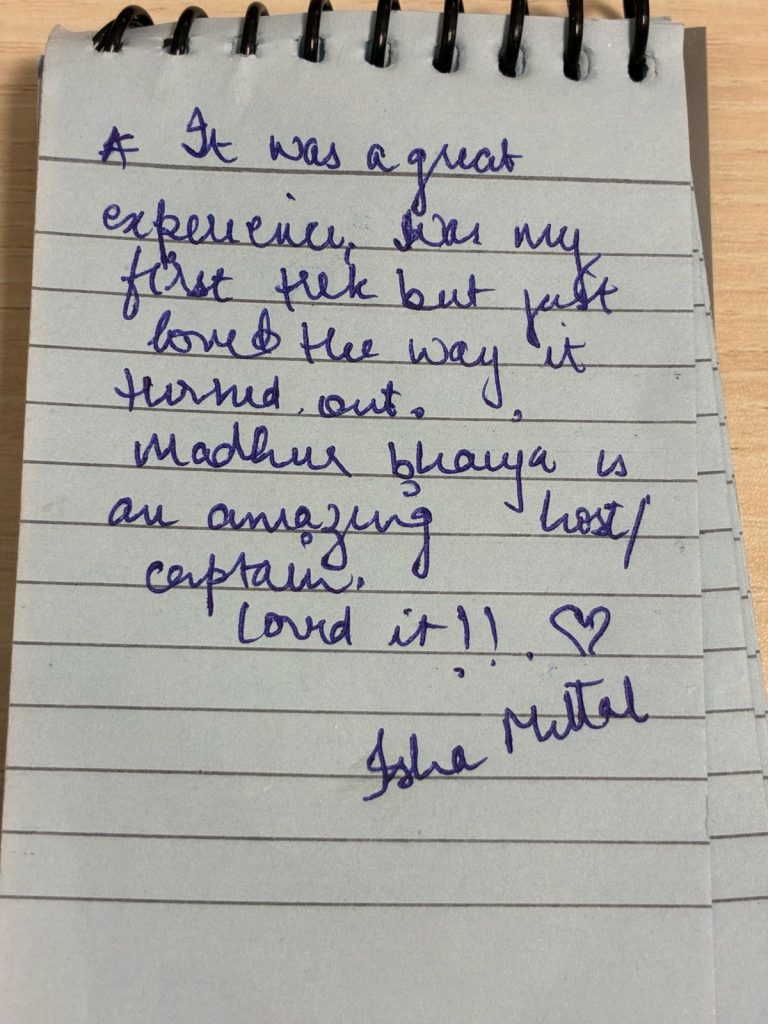 ★ It was a great
experience, was my
first trek but just
loved the way it
turned out.
Madhur bhaiya is
an amazing host/
captain.
loved it!! ♡
Isha Mittal